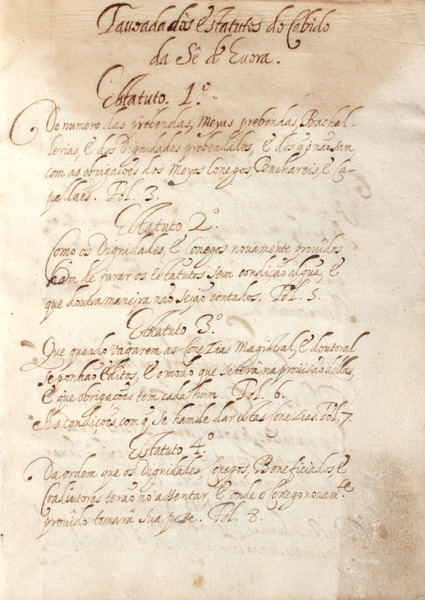 Tauoada dos estatutos do Cabido
da Sê d Euora.
Estatuto. 1.º
Do numero das prebendas, Meyas prebendas, Bachal-
lerias, E dos Dignidades prebendados, E dos q̃ não sam
com as obrigações dos Meyos Conegos, Bachareis, E Ca-
pellães. Fol. 3.
Estatuto 2.º
Como os Dignidades, E Conegos nouamente prouidos
ham de jurar os estatutos sem condição algũa, E
que doutra maneira não sejão contados. Fol. 5.
Estatuto 3.º
Que quando vagarem as Conezias Magistral, E doutoral
se ponhão Editos, E o modo que se terá na prouisão dellas,
E que obrigações tem cada hum. Fol. 6.
As condições com q̃ se ham de dar estas Conezias. Fol. 7.
Estatuto 4.º
Da ordem que os Dignidades, Conegos, Beneficiados, E
Coadjutores terão no assentar, E onde o Conego nouam.te
prouido tomará sua posse. Fol. 8.